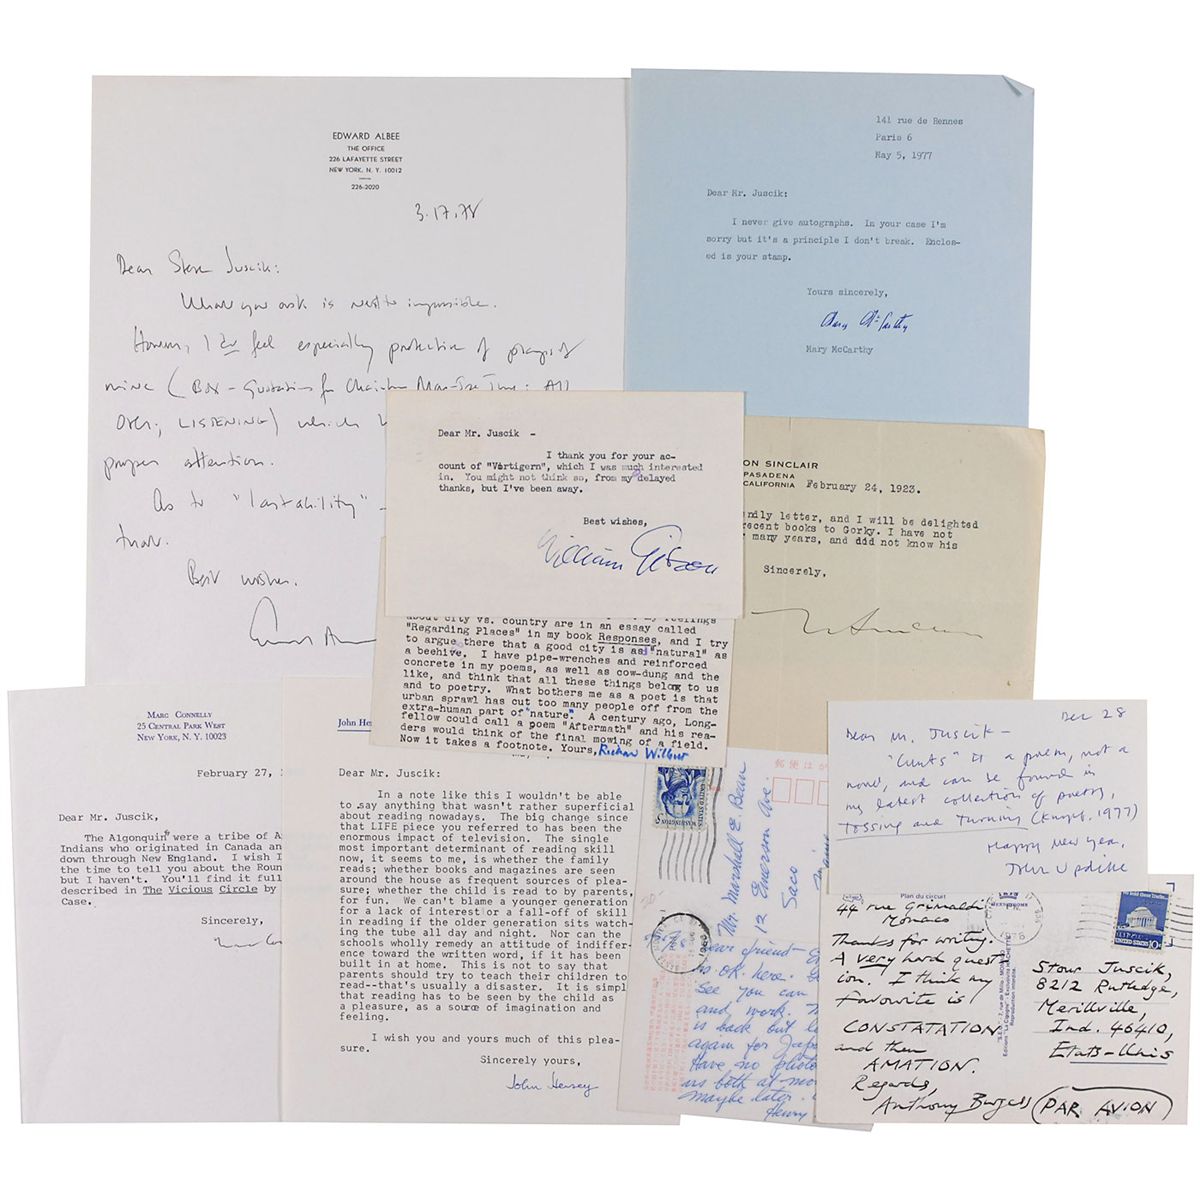 EDWARD ALBEE
THE OFFICE
226 LAFAYETTE STREET
NEW YORK, N. Y. 10012
226-2020
3.17.78
Dear Steve Juscik:
What you ask is next to impossible.
However, I do feel especially protective of plays of
mine (BOX - Quotations for Chairman Mao-Tse Tung; All
Over; LISTENING) which
proper attention.
As to "lastability" -
Best wishes.
141 rue de Rennes
Paris 6
May 5, 1977
Dear Mr. Juscik:
I never give autographs. In your case I'm
sorry but it's a principle I don't break. Enclos-
ed is your stamp.
Yours sincerely,
Mary McCarthy
Mary McCarthy
Dear Mr. Juscik -
I thank you for your ac-
count of "Vertigern", which I was much interested
in. You might not think so, from my delayed
thanks, but I've been away.
Best wishes,
William Gibson
ON SINCLAIR
PASADENA
CALIFORNIA
February 24, 1923.
ndly letter, and I will be delighted
recent books to Gorky. I have not
many years, and did not know his
Sincerely,
about city vs. country are in an essay called
"Regarding Places" in my book Responses, and I try
to argue there that a good city is as "natural" as
a beehive. I have pipe-wrenches and reinforced
concrete in my poems, as well as cow-dung and the
like, and think that all these things belong to us
and to poetry. What bothers me as a poet is that
urban sprawl has cut too many people off from the
extra-human part of "nature". A century ago, Long-
fellow could call a poem "Aftermath" and his rea-
ders would think of the final mowing of a field.
Now it takes a footnote. Yours, Richard Wilbur
MARC CONNELLY
25 CENTRAL PARK WEST
NEW YORK, N. Y. 10023
February 27,
Dear Mr. Juscik,
The Algonquin were a tribe of A
Indians who originated in Canada an
down through New England. I wish I
the time to tell you about the Roun
but I haven't. You'll find it full
described in The Vicious Circle by
Case.
Sincerely,
John He
Dear Mr. Juscik:
In a note like this I wouldn't be able
to say anything that wasn't rather superficial
about reading nowadays. The big change since
that LIFE piece you referred to has been the
enormous impact of television. The single
most important determinant of reading skill
now, it seems to me, is whether the family
reads; whether books and magazines are seen
around the house as frequent sources of plea-
sure; whether the child is read to by parents,
for fun. We can't blame a younger generation
for a lack of interest or a fall-off of skill
in reading if the older generation sits watch-
ing the tube all day and night. Nor can the
schools wholly remedy an attitude of indiffer-
ence toward the written word, if it has been
built in at home. This is not to say that
parents should try to teach their children to
read--that's usually a disaster. It is simpl
that reading has to be seen by the child as
a pleasure, as a source of imagination and
feeling.
I wish you and yours much of this plea-
sure.
Sincerely yours,
John Hersey
郵便は
Mr. Marshall E. Bean
12 Emerson Ave.
Saco
Maine
ear friend-
is OK here.
see you can
and work.
is back out
again for Japa
Have no photo
us both at mo
maybe later.
Henry
UNITED STATES
Dec 28
Dear Mr. Juscik -
"Cunts" is a poem, not a
novel, and can be found in
my latest collection of poetry,
Tossing and Turning (Knopf, 1977)
Happy New Year,
John Updike
Plan du circuit
44 rue Grimaldi
Monaco
Thanks for writing.
A very hard quest
ion. I think my
favourite is
CONSTATATION
and then
AMATION.
Regards,
Anthony Burgess
UNITED STATES 10c
Stour Juscik,
8212 Rutledge,
Merillville,
Ind. 46410,
Etats-Unis
(PAR AVION)